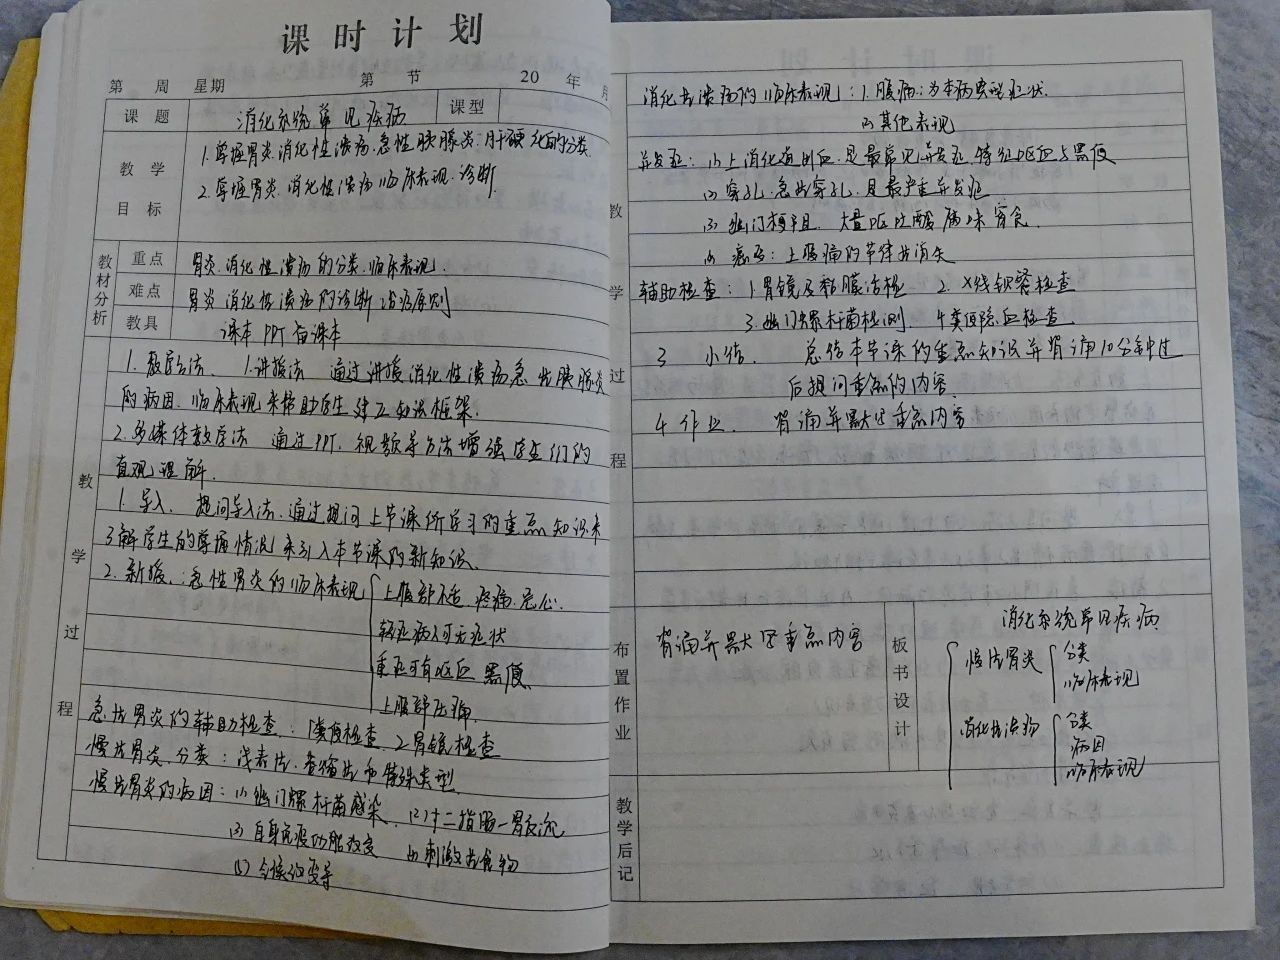 课时计划
第 周 星期 第 节 20 年 月
课题 消化系统常见疾病 课型
教学目标
1.掌握胃炎.消化性溃疡.急性胰腺炎.肝硬化的分类
2.掌握胃炎.消化性溃疡临床表现.诊断
教材分析
重点 胃炎.消化性溃疡的分类.临床表现.
难点 胃炎消化性溃疡的诊断治疗原则
教具 课本 PPT 备课本
教学过程
1.教学法、 1.讲授法 通过讲授消化性溃疡急性胰腺炎
的病因.临床表现来帮助学生建立知识框架.
2.多媒体教学法 通过PPT.视频等方法增强学生们的
直观理解.
1.导入. 提问导入法.通过提问上节课所学习的重点知识来
了解学生的掌握情况来引入本节课的新知识.
2.新授.:急性胃炎的临床表现 上腹部不适.疼痛.恶心.
轻症病人可无症状
重症可有呕血 黑便
上腹部压痛.
急性胃炎的辅助检查: 1粪便检查 2胃镜检查
慢性胃炎.分类:浅表性.萎缩性和特殊类型.
慢性胃炎的病因:(1)幽门螺杆菌感染. (2)十二指肠-胃反流
(3)自身免疫功能改变 (4)刺激性食物
(5)气候
教学过程
消化性溃疡的临床表现:1.腹痛:为本病典型症状.
(2)其他表现
并发症:(1)上消化道出血.是最常见并发症.特征呕血与黑便
(2)穿孔.急性穿孔.是最严重并发症
(3)幽门梗阻. 大量呕吐酸腐味宿食.
(4)癌变:上腹痛的节律性消失
辅助检查:1胃镜及黏膜活检 2.X线钡餐检查
3.幽门螺杆菌检测. 4粪便隐血检查
3 小结. 总结本节课的重点知识并背诵10分钟过
后提问重点的内容.
4 作业. 背诵并默写重点内容
布置作业 背诵并默写重点内容
板书设计
消化系统常见疾病
慢性胃炎 分类
临床表现
消化性溃疡 分类
病因
临床表现
教学后记